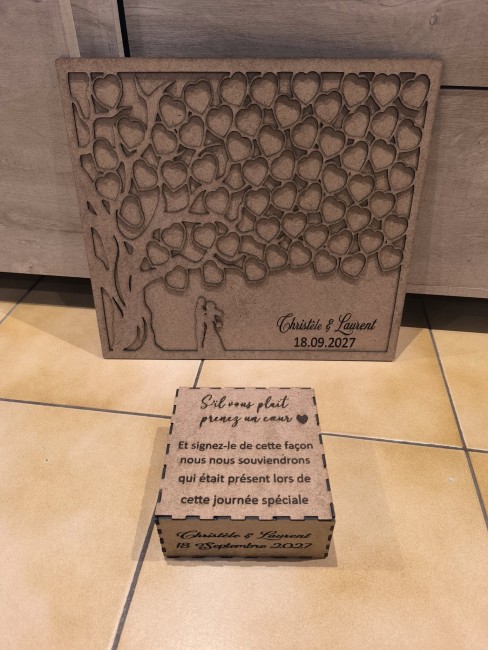 Christèle & Laurent
18.09.2027
S'il vous plait
prenez un cœur
Et signez-le de cette façon
nous nous souviendrons
qui était présent lors de
cette journée spéciale
Christèle & Laurent
18 Septembre 2027